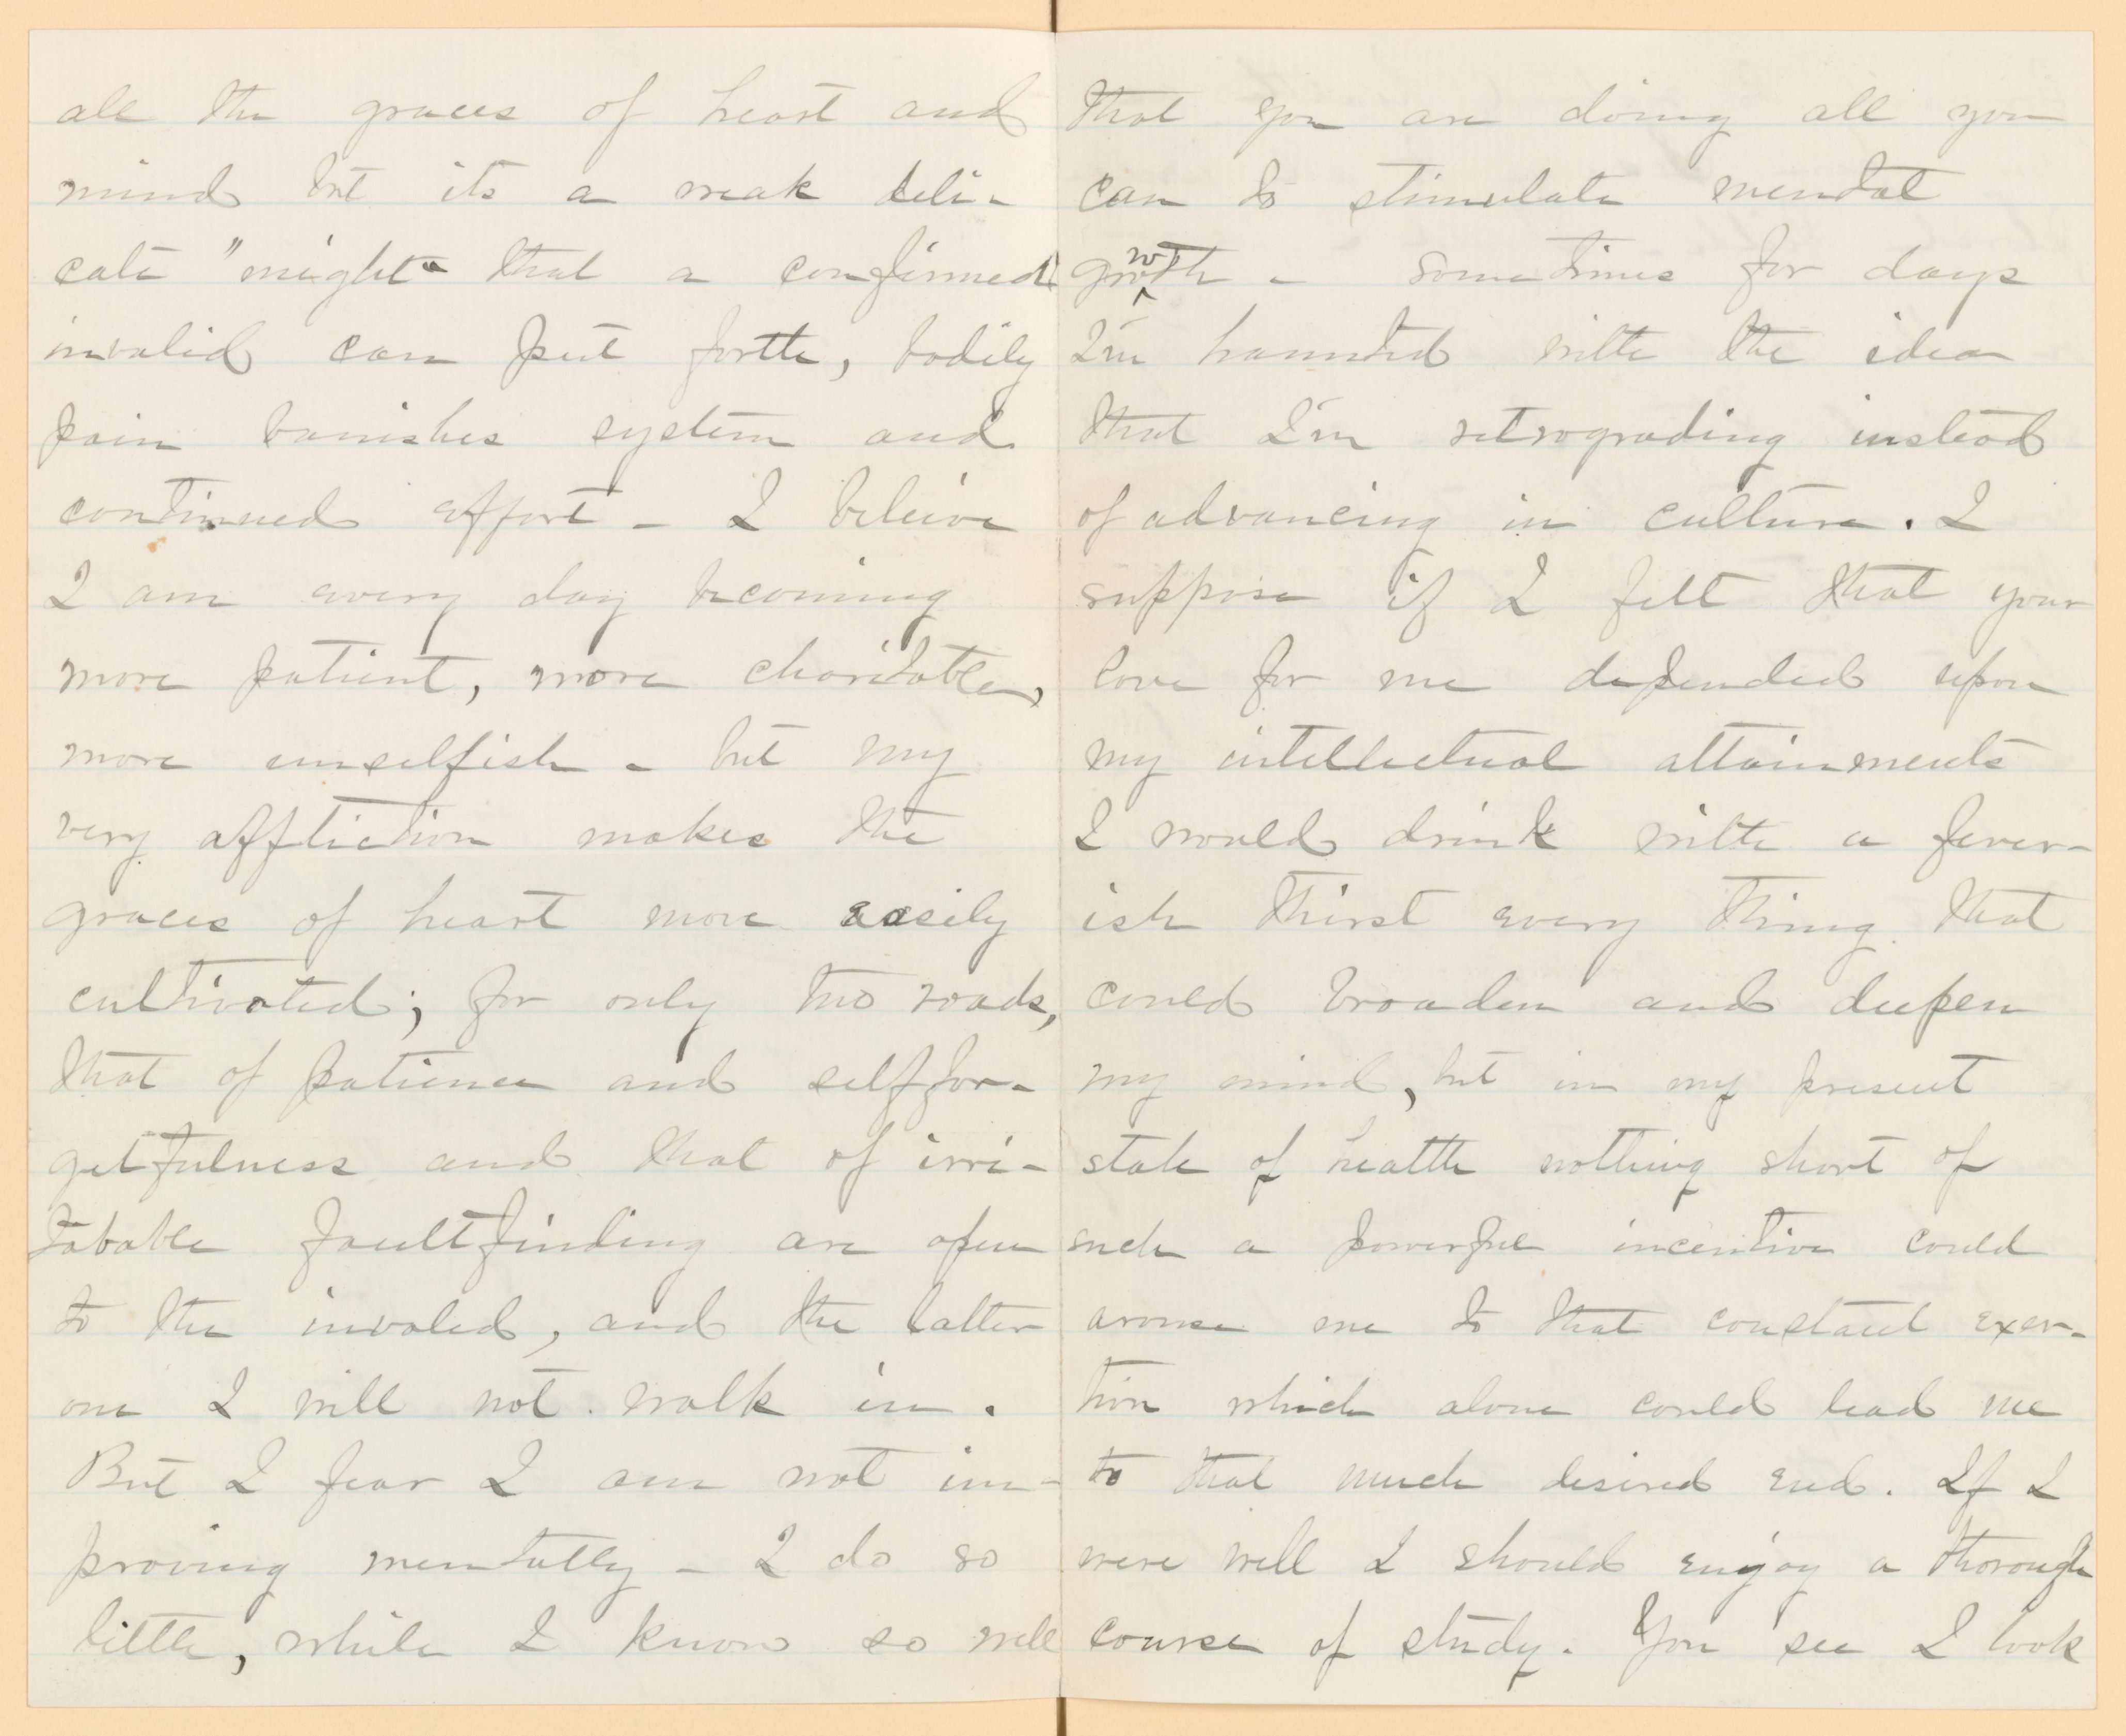 all the graces of heart and
mind but its a weak deli-
cate "might" that a confirmed
invalid can put forth, bodily
pain banishes system and
continued effort - I beleive
I am every day becoming
more patient, more charitable,
more unselfish - but my
very affliction makes the
graces of heart more easily
cultivated; for only two roads,
that of patience and selffor-
getfulness and that of irri-
tabable faultfinding are open
to the invaled, and the latter
one I will not walk in.
But I fear I am not im-
proving mentally - I do so
little, while I know so well
that you are doing all you
can to stimulate mental
growth - sometimes for days
I'm haunted with the idea
that I'm retrograding instead
of advancing in culture. I
suppose if I felt that your
love for me depended upon
my intellectual attainments
I would drink with a fever-
ish thirst every thing that
could broaden and deepen
my mind, but in my present
state of health nothing short of
such a powerful incentive could
arouse me to that constant exer-
tion which alone could lead me
to that much desired end. If I
were well I should enjoy a thorough
course of study. You see I look